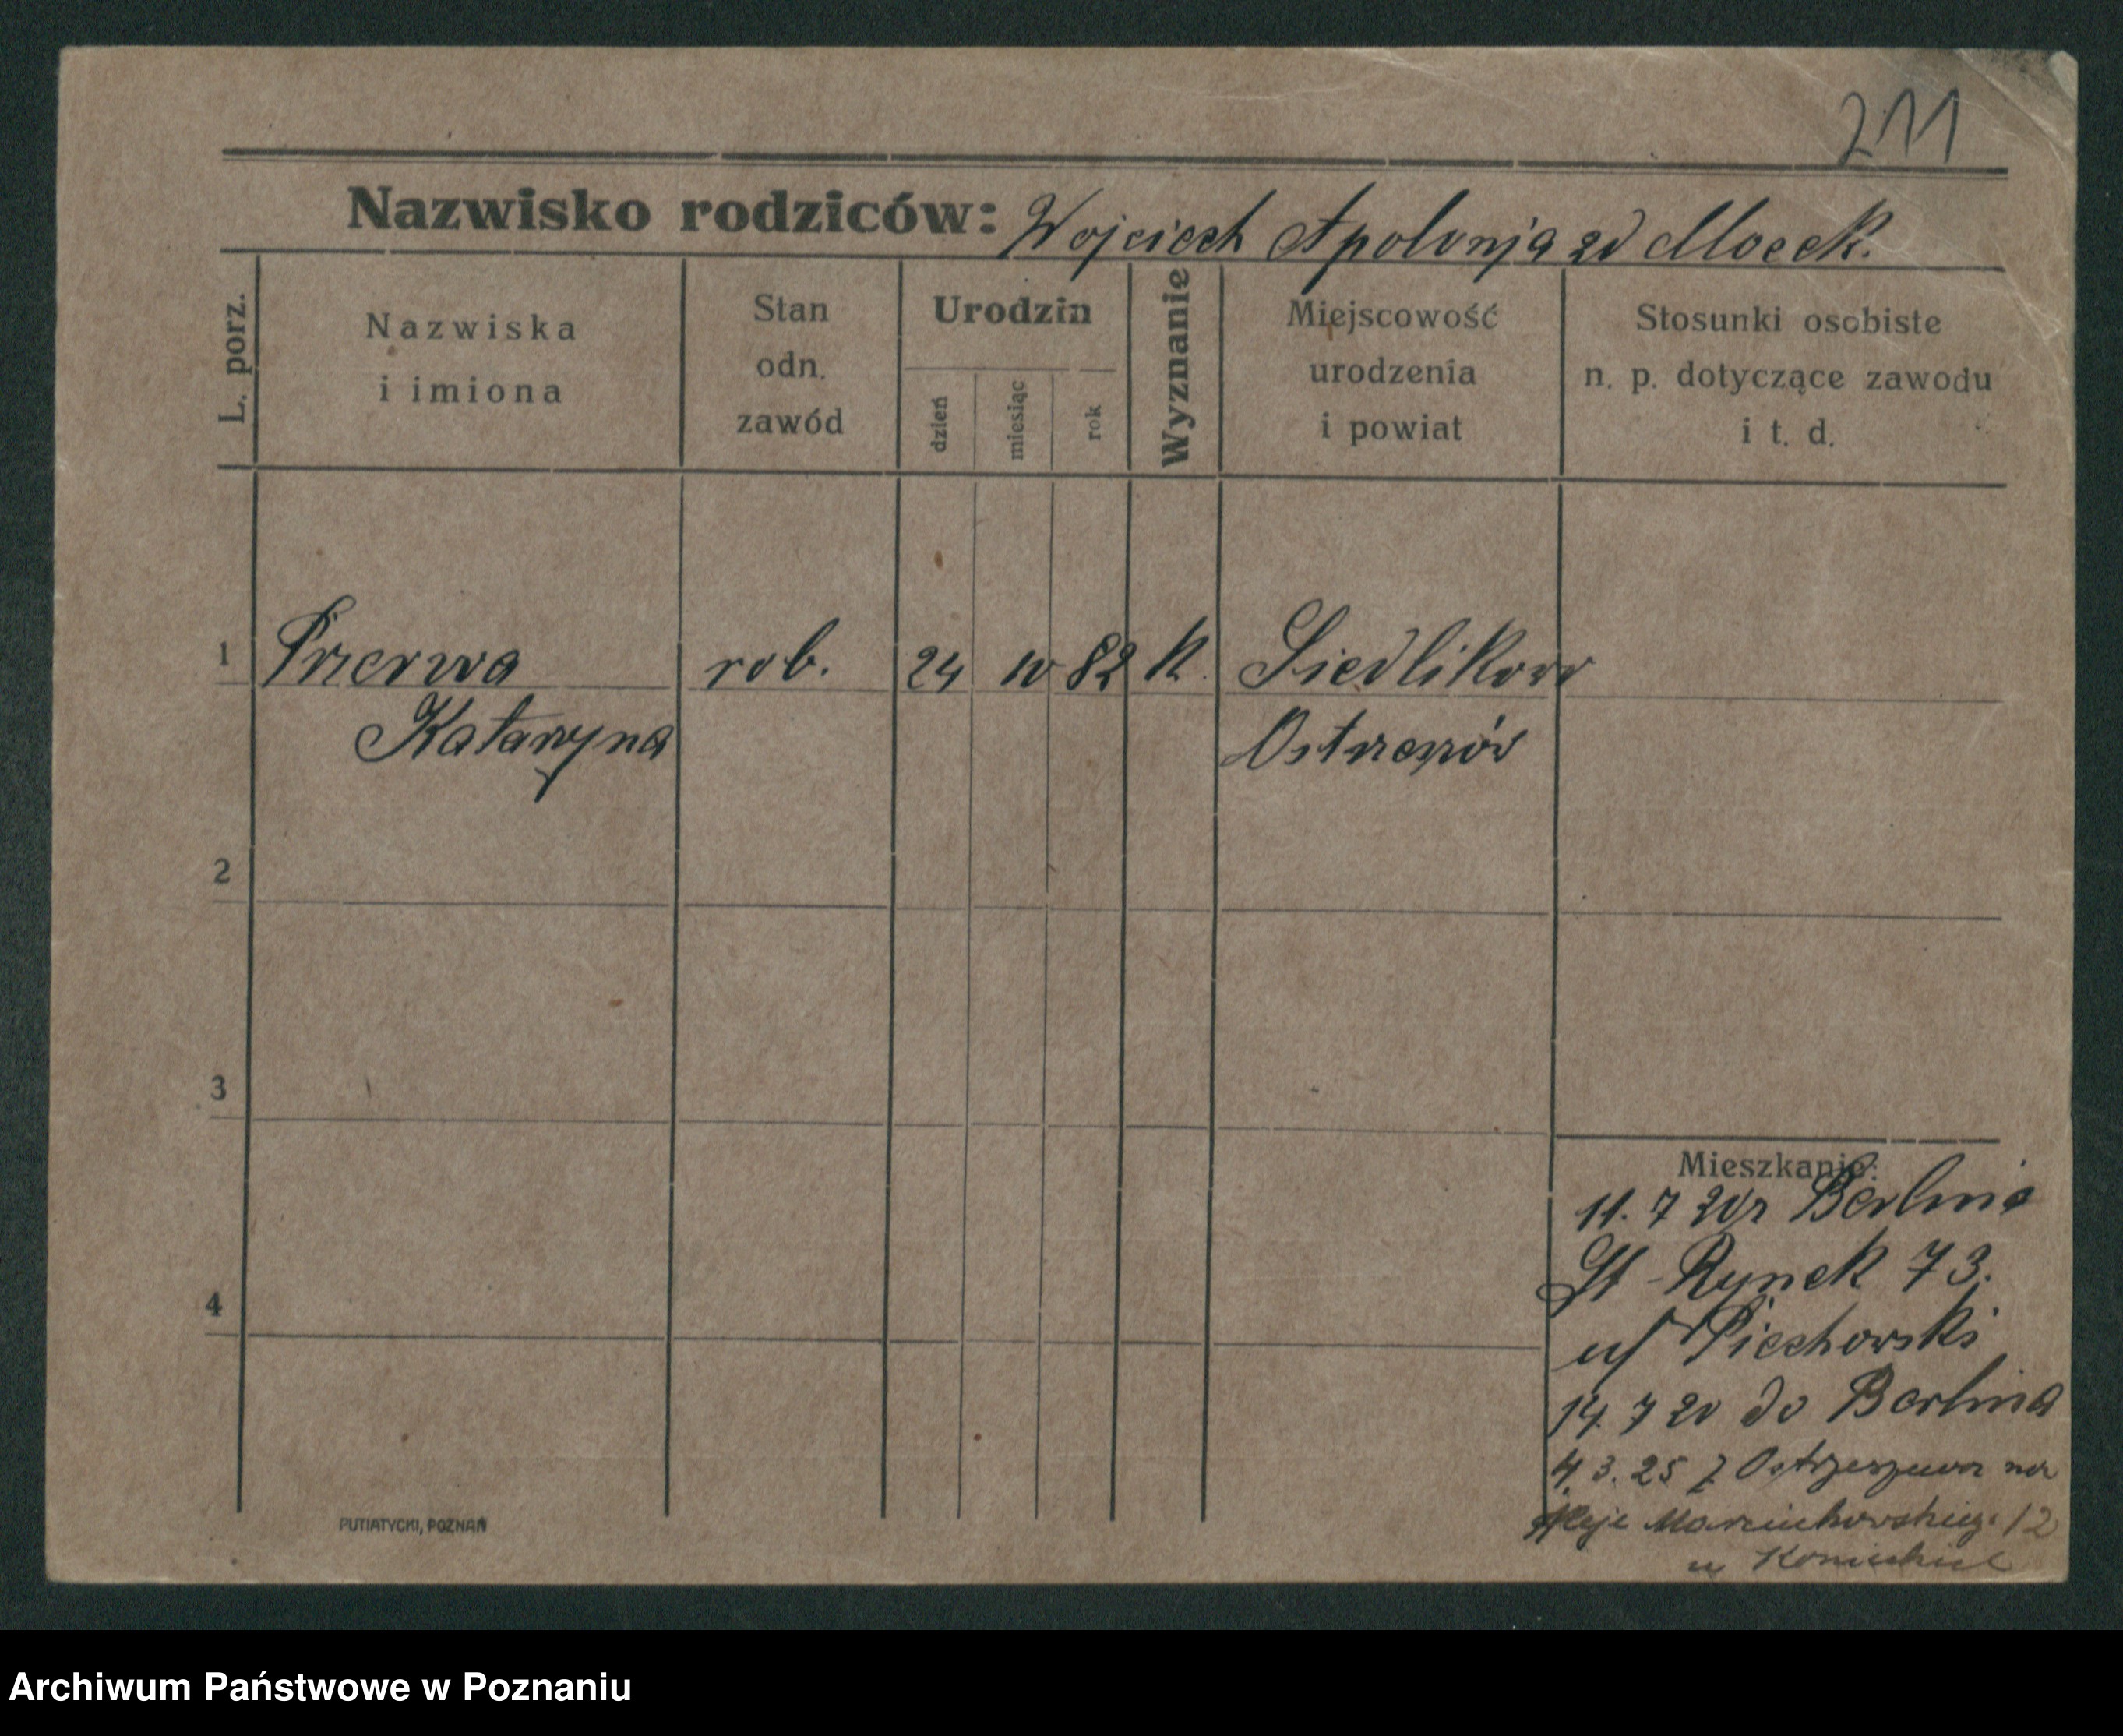 211
Nazwisko rodziców: Wojciech Apolonja zd Mocek.
L. porz.
Nazwiska
i imiona
Stan
odn.
zawód
Urodzin
dzień
miesiąc
rok
Wyznanie
Miejscowość
urodzenia
i powiat
Stosunki osobiste
n. p. dotyczące zawodu
i t. d.
1 Przerwa rob. 24 10 82 k. Siedlików
Katarzyna Ostrzeszów
2
3
4
Mieszkanie:
11. 7 20 z Berlina
St-Rynek 73.
u/ Piechowski
14. 7 20 do Berlina
4. 3. 25 z Ostrzeszewa na
Aleje Marcinkowskiego 12
u
PUTIATYCKI, POZNAŃ
Archiwum Państwowe w Poznaniu